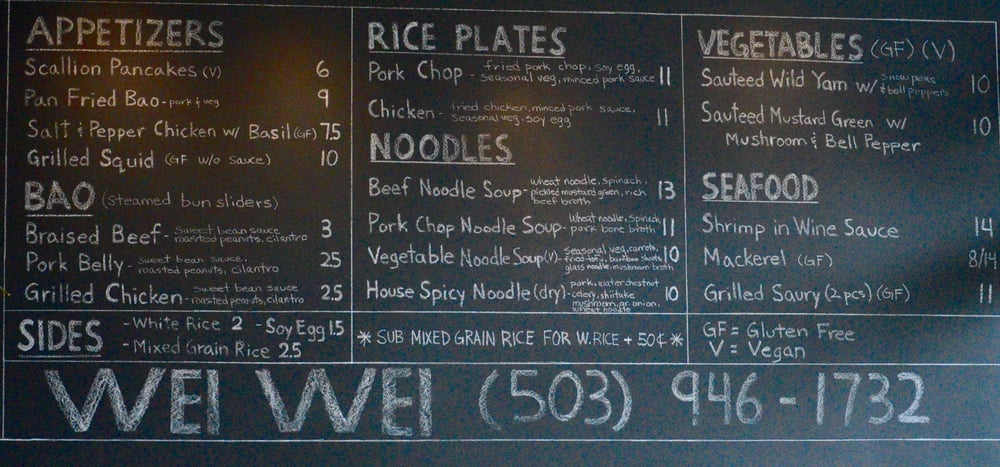 APPETIZERS
Scallion Pancakes (V) 6
Pan Fried Bao - pork & veg 9
Salt & Pepper Chicken w/ Basil (GF) 7.5
Grilled Squid (GF w/o sauce) 10
BAO (steamed bun sliders)
Braised Beef - sweet bean sauce 3
roasted peanuts, cilantro
Pork Belly - sweet bean sauce, 2.5
roasted peanuts, cilantro
Grilled Chicken - sweet bean sauce 2.5
roasted peanuts, cilantro
SIDES
- White Rice 2 - Soy Egg 1.5
- Mixed Grain Rice 2.5
RICE PLATES
Pork Chop - fried pork chop, soy egg, 11
seasonal veg, minced pork sauce
Chicken - fried chicken, minced pork sauce, 11
seasonal veg, soy egg
NOODLES
Beef Noodle Soup - wheat noodle, spinach, 13
pickled mustard green, rich
beef broth
Pork Chop Noodle Soup - wheat noodle, spinach 11
pork bone broth
Vegetable Noodle Soup (V) - seasonal veg, carrots, 10
fried tofu, bamboo shoots,
glass noodle, mushroom broth
House Spicy Noodle (dry) - pork, water chestnut 10
celery, shiitake
mushroom, gr. onion,
wheat noodle
* SUB MIXED GRAIN RICE FOR W. RICE + 50¢ *
VEGETABLES (GF) (V)
Sauteed Wild Yam w/ snow peas 10
& bell peppers
Sauteed Mustard Green w/ 10
Mushroom & Bell Pepper
SEAFOOD
Shrimp in Wine Sauce 14
Mackerel (GF) 8/14
Grilled Saury (2 pcs) (GF) 11
GF = Gluten Free
V = Vegan
WEI WEI (503) 946-1732